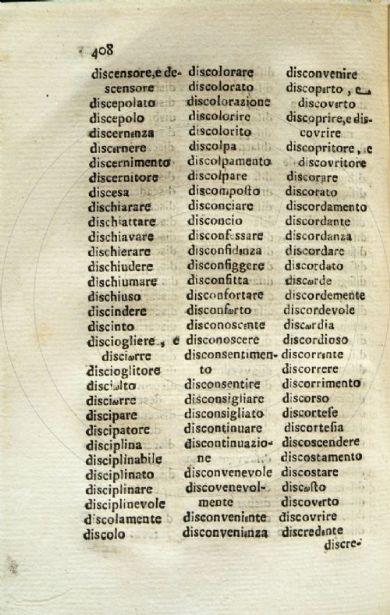 408
discensore, e de-
scensore
discepolato
discepolo
discernenza
discernere
discernimento
discernitore
discesa
dischiarare
dischiattare
dischiavare
dischierare
dischiudere
dischiumare
dischiuso
discindere
discinto
disciogliere, e
disciorre
discioglitore
disciolto
disciorre
discipare
discipatore
disciplina
disciplinabile
disciplinato
disciplinare
disciplinevole
discolamente
discolo
discolorare
discolorato
discolorazione
discolorire
discolorito
discolpa
discolpamento
discolpare
discomposto
disconciare
disconcio
disconfessare
disconfidanza
disconfiggere
disconfitta
disconfortare
disconforto
disconoscente
disconoscere
disconsentimen-
to
disconsentire
disconsigliare
disconsigliato
discontinuare
discontinuazio-
ne
disconvenevole
discovenevol-
mente
disconveniente
disconvenienza
disconvenire
discoperto, e
discoverto
discoprire, e dis-
covrire
discopritore, e
discovritore
discorare
discorato
discordamento
discordante
discordanza
discordare
discordato
discorde
discordemente
discordevole
discordia
discordioso
discorrente
discorrere
discorrimento
discorso
discortese
discortesia
discoscendere
discostamento
discostare
discosto
discoverto
discovrire
discredente
discre-